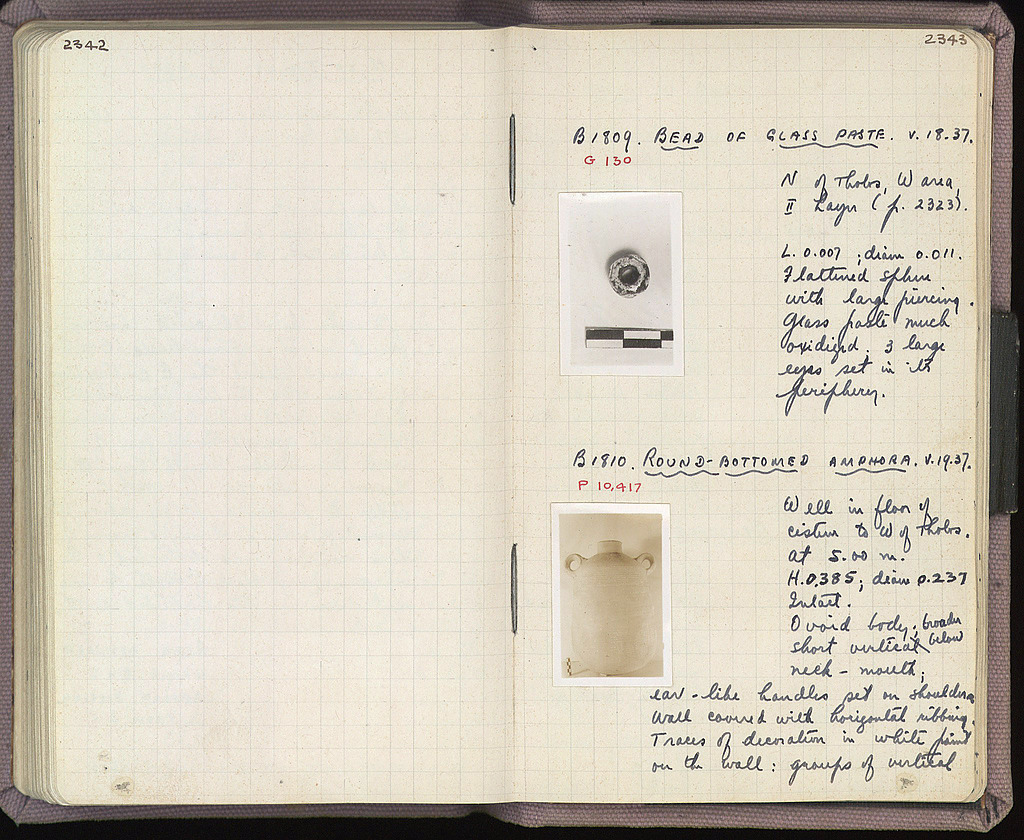 2342
2343
B1809. BEAD OF GLASS PASTE. V.18.37.
G 130
N of Tholos, W area,
II Layer (p. 2323).
L. 0.007 ; diam 0.011.
Flattened sphere
with large piercing.
Glass paste much
oxidized. 3 large
eyes set in its
periphery.
B1810. ROUND-BOTTOMED AMPHORA. V.19.37.
P 10,417
Well in floor of
cistern to W of Tholos.
at 5.00 m.
H. 0.385; diam 0.237
Intact.
Ovoid body, broader
below
short vertical
neck - mouth;
ear-like handles set on shoulders.
Wall covered with horizontal ribbing.
Traces of decoration in white paint
on the wall: groups of vertical